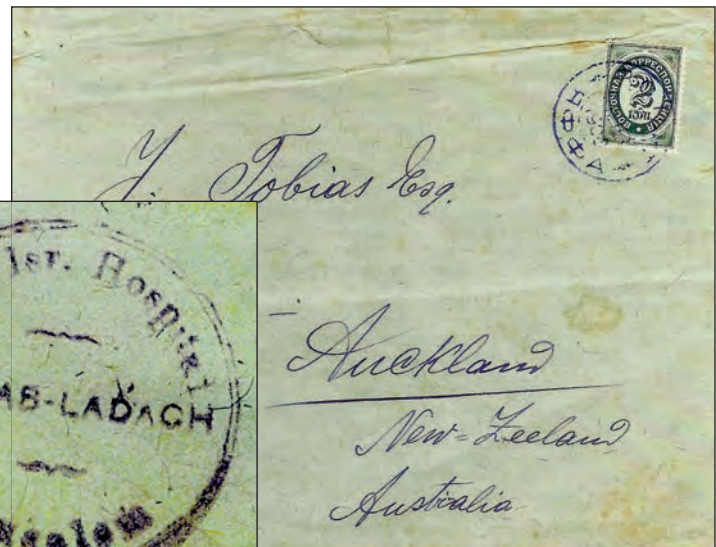 ВОСТОЧНАЯ КОРРЕСПОНДЕНЦІЯ
2
КОП
ЯФФА
J. Tobias Esq.
Auckland
New=Zeeland
Australia
Isr. Hospital
AB-LADACH
salem